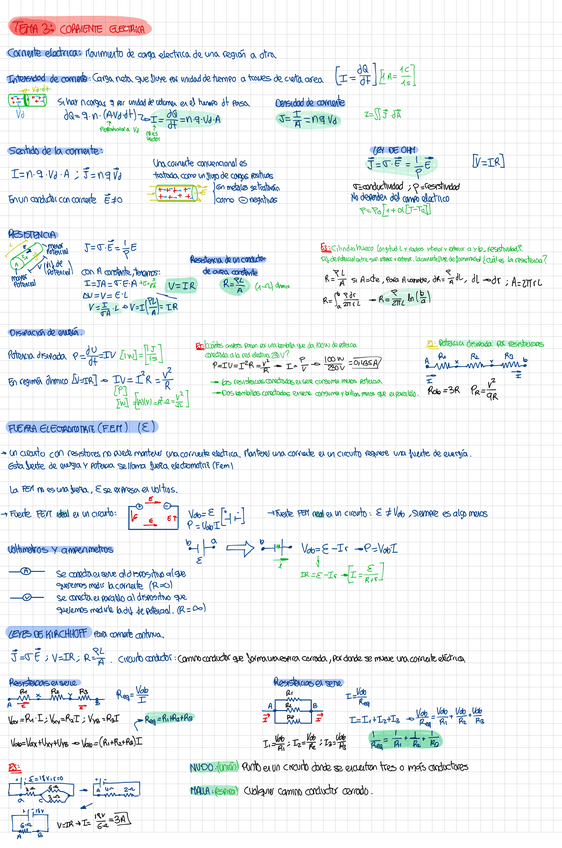 TEMA 3: CORRIENTE ELECTRICA
Corriente electrica: Movimiento de carga electrica de una región a otra.
Intensidad de corriente: Carga neta, que fluye por unidad de tiempo a traves de cierta area [I = dQ/dt] [1A = 1C/1s]
Si hay n cargas q por unidad de volumen en el tiempo dt pasa
Densidad de corriente
dQ = q·n·(AVd dt) → I = dQ/dt = nqVdA
J = I/A = nqVd
I = ∬ J dA
Sentido de la corriente:
I = n·q·Vd·A ; J = nqVd
Una corriente convencional es
tratada como un flujo de cargas positivas
En un conductor con corriente E≠0
en metales se tratarían
como ⊖ negativas
LEY DE OHM
J = σ·E = 1/ρ E [V=IR]
σ = conductividad ; ρ = resistividad
No dependen del campo electrico
ρ = ρ0[1+α(T-T0)]
RESISTENCIA
J = σ·E = 1/ρ E
menor potencial
mayor potencial
con A constante, tenemos:
I = JA = σ·E·A
V = IR
ΔV = V = E·L
Resistencia de un conductor
de area constante
R = ρL/A
Ex: Cilindro hueco longitud L y radios interior y exterior a y b, resistividad?
R = ρL/A si A=cte, para A variable, dR = ρ/A dL, dL → dr ; A = 2πrL
R = ∫ ρdr/2πrL → R = ρ/2πL ln(b/a)
Disipación de energía.
Potencia disipada P = dU/dt = IV [W] = [J/s]
En regimen óhmico [V=IR] → IV = I²R = V²/R
P = IV = I²R = V²/R → I = P/V → 100W/230V = 0,435A
→ Dos resistencias conectadas en serie consumen menos potencia
→ Dos bombillas conectadas en serie consumen y brillan menos que en paralelo.
Ex: Potencia disipada por resistencias
R1 R2 R3
Rab = 3R PR = V²/9R
FUERZA ELECTROMOTRIZ (FEM) (ε)
→ Un circuito con resistores no puede mantener una corriente electrica. Mantener una corriente en un circuito requiere una fuente de energía.
Esta fuente de energía y potencia se llama fuerza electromotriz (Fem)
La FEM no es una fuerza, ε se expresa en voltios.
→ Fuente FEM ideal en un circuito:
Vab = ε
P = VabI
→ Fuente FEM real en un circuito: ε ≠ Vab, siempre es algo menos
Voltimetros y amperimetros
Vab = ε - Ir → P = VabI
IR = ε - Ir → [I = ε/R+r]
A Se conecta en serie al dispositivo al que
queremos medir la corriente (R=0)
V Se conecta en paralelo al dispositivo que
queremos medirle la dif de potencial. (R=∞)
LEYES DE KIRCHHOFF Para corriente continua.
J = σE ; V=IR ; R = ρL/A . Circuito conductor: Camino conductor que forma una espira cerrada, por donde se mueve una corriente eléctrica
Resistencias en serie
R1 R2 R3
Req = Vab/I
Vax = R1·I ; Vxy = R2I ; Vyb = R3I
Req = R1+R2+R3
Vab = Vax+Vxy+Vyb → Vab = (R1+R2+R3)I
Resistencias en serie
R1 R2 R3
I = Vab/Req
I = I1+I2+I3 → Vab/Req = Vab/R1 + Vab/R2 + Vab/R3
I1 = Vab/R1 ; I2 = Vab/R2 ; I3 = Vab/R3
1/Req = 1/R1 + 1/R2 + 1/R3
Ex:
NUDO (unión) Punto en un circuito donde se encuentran tres o más conductores
MALLA (espira) Cualquier camino conductor cerrado.
V=IR → I = 18V/6Ω = 3A